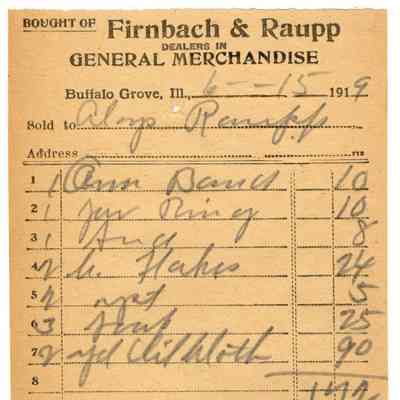 BOUGHT OF Firnbach & Raupp
DEALERS IN
GENERAL MERCHANDISE
Buffalo Grove, Ill., 6-15 1919
Sold to Aloys Raupp
Address
1 1 Band 10
2 1 Jar Ring 10
3 1 8
4 2 Flakes 24
5 2 5
6 3 25
7 2 yd Oil Kloth 90
8 172